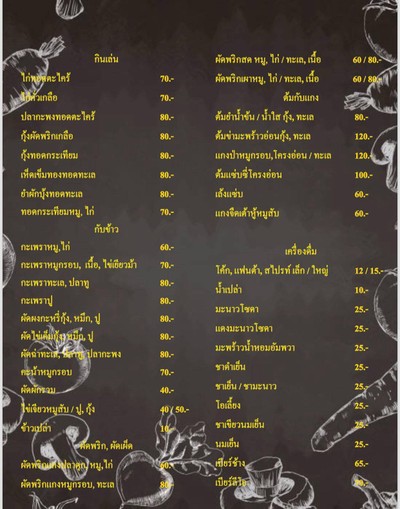 กินเล่น
ไก่ทอดตะไคร้ 70.-
ไก่คั่วเกลือ 70.-
ปลากะพงทอดตะไคร้ 80.-
กุ้งผัดพริกเกลือ 80.-
กุ้งทอดกระเทียม 80.-
เห็ดเข็มทองทอดทะเล 80.-
ยำผักบุ้งทอดทะเล 80.-
ทอดกระเทียมหมู, ไก่ 70.-
กับข้าว
กะเพราหมู,ไก่ 60.-
กะเพราหมูกรอบ, เนื้อ, ไข่เยี่ยวม้า 70.-
กะเพราทะเล, ปลาทู 80.-
กะเพราปู 80.-
ผัดผงกะหรี่กุ้ง, หมึก, ปู 80.-
ผัดไข่เค็มกุ้ง, หมึก, ปู 80.-
ผัดฉ่าทะเล, ปลาทู, ปลากะพง 80.-
คะน้าหมูกรอบ 70.-
ผัดผักรวม 40.-
ไข่เจียวหมูสับ / ปู, กุ้ง 40 / 50.-
ข้าวเปล่า 10.-
ผัดพริก, ผัดเผ็ด
ผัดพริกแกงปลาดุก, หมู,ไก่ 60.-
ผัดพริกแกงหมูกรอบ, ทะเล 80.-
ผัดพริกสด หมู, ไก่ / ทะเล, เนื้อ 60 / 80.-
ผัดพริกเผาหมู, ไก่ / ทะเล, เนื้อ 60 / 80.-
ต้มกับแกง
ต้มยำน้ำข้น / น้ำใส กุ้ง, ทะเล 80.-
ต้มข่ามะพร้าวอ่อนกุ้ง, ทะเล 120.-
แกงป่าหมูกรอบ,โครงอ่อน / ทะเล 120.-
ต้มแซ่บซี่โครงอ่อน 100.-
เล้งแซ่บ 60.-
แกงจืดเต้าหู้หมูสับ 60.-
เครื่องดื่ม
โค้ก, แฟนต้า, สไปรท์ เล็ก / ใหญ่ 12 / 15.-
น้ำเปล่า 10.-
มะนาวโซดา 25.-
แดงมะนาวโซดา 25.-
มะพร้าวน้ำหอมอัมพวา 25.-
ชาดำเย็น 25.-
ชาเย็น / ชามะนาว 25.-
โอเลี้ยง 25.-
ชาเขียวนมเย็น 25.-
นมเย็น 25.-
เบียร์ช้าง 65.-
เบียร์ลีโอ